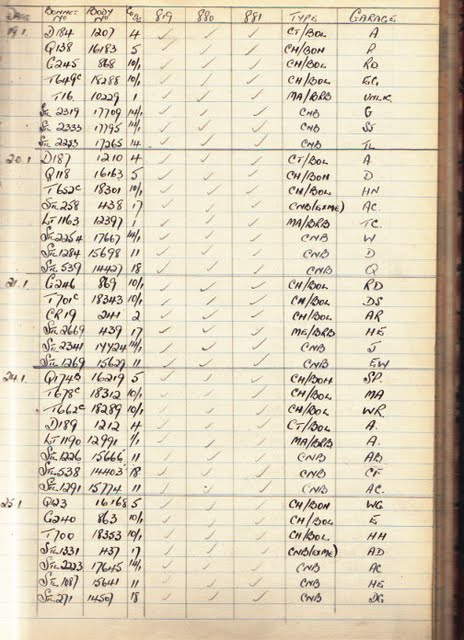 DATE BONNET No BODY No Code 879 880 881 TYPE GARAGE
19.1 D184 1207 4 ✓ ✓ ✓ CT/BOL A
Q138 16183 5 ✓ ✓ ✓ CH/BOH P
G245 868 10/1 ✓ ✓ ✓ CH/BOL RD
T649c 18288 10/1 ✓ ✓ ✓ CH/BOL EC
T16 10229 1 ✓ ✓ ✓ MA/BRB UHLK
STL 2319 17709 14/1 ✓ ✓ ✓ CNB G
STL 2333 17795 14/1 ✓ ✓ ✓ CNB SJ
STL 2233 17265 14 ✓ ✓ ✓ CNB TL
20.1 D187 1210 4 ✓ ✓ ✓ CT/BOL A
Q118 16163 5 ✓ ✓ ✓ CH/BOH D
T652c 18301 10/1 ✓ ✓ ✓ CH/BOL HN
STL 258 438 17 ✓ ✓ ✓ CNB(GME) AC
LT 1163 12397 1/1 ✓ ✓ ✓ MA/BRB TC
STL 2254 17667 14/1 ✓ ✓ ✓ CNB W
STL 1284 15698 11 ✓ ✓ ✓ CNB D
STL 539 14427 18 ✓ ✓ ✓ CNB Q
21.1 G246 869 10/1 ✓ ✓ ✓ CH/BOL RD
T701c 18343 10/1 ✓ ✓ ✓ CH/BOL DS
CR19 241 2 ✓ ✓ ✓ CH/BOL AR
STL 2669 439 17 ✓ ✓ ✓ ME/BRB HE
STL 2341 14/1 ✓ ✓ ✓ CNB J
STL 1269 15629 11 ✓ ✓ ✓ CNB EW
24.1 Q174B 16219 5 ✓ ✓ ✓ CH/BOH SP
T678c 18312 10/1 ✓ ✓ ✓ CH/BOL MA
T662c 18289 10/1 ✓ ✓ ✓ CH/BOL WR
D189 1212 4 ✓ ✓ ✓ CT/BOL A
LT 1190 12991 1/1 ✓ ✓ ✓ MA/BRB A
STL 1226 15666 11 ✓ ✓ ✓ CNB AB
STL 538 14403 18 ✓ ✓ ✓ CNB CF
STL 1291 15774 11 ✓ ✓ ✓ CNB AC
25.1 Q23 16168 5 ✓ ✓ ✓ CH/BOH WG
G240 863 10/1 ✓ ✓ ✓ CH/BOL E
T700 18353 10/1 ✓ ✓ ✓ CH/BOL HH
STL 1331 437 17 ✓ ✓ ✓ CNB(GME) AD
STL 2223 17645 14/1 ✓ ✓ ✓ CNB AC
STL 1087 15641 11 ✓ ✓ ✓ CNB HE
STL 271 14507 18 ✓ ✓ ✓ CNB DG